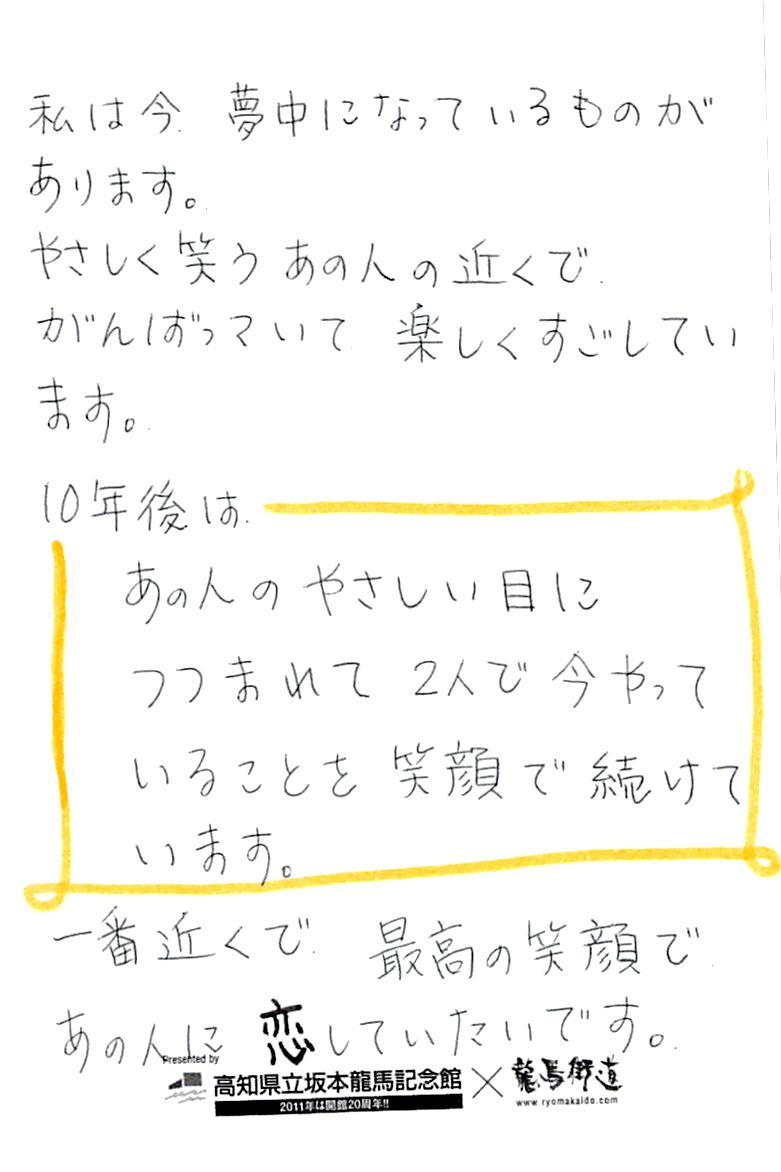 私は今、夢中になっているものが
あります。
やさしく笑うあの人の近くで、
がんばっていて、楽しくすごしてい
ます。
10年後は、
あの人のやさしい目に
つつまれて 2人で今やって
いることを笑顔で続けて
います。
一番近くで、最高の笑顔で、
あの人に恋していたいです。
Presented by
高知県立坂本龍馬記念館×龍馬街道
2011年は開館20周年!! www.ryomakaido.com